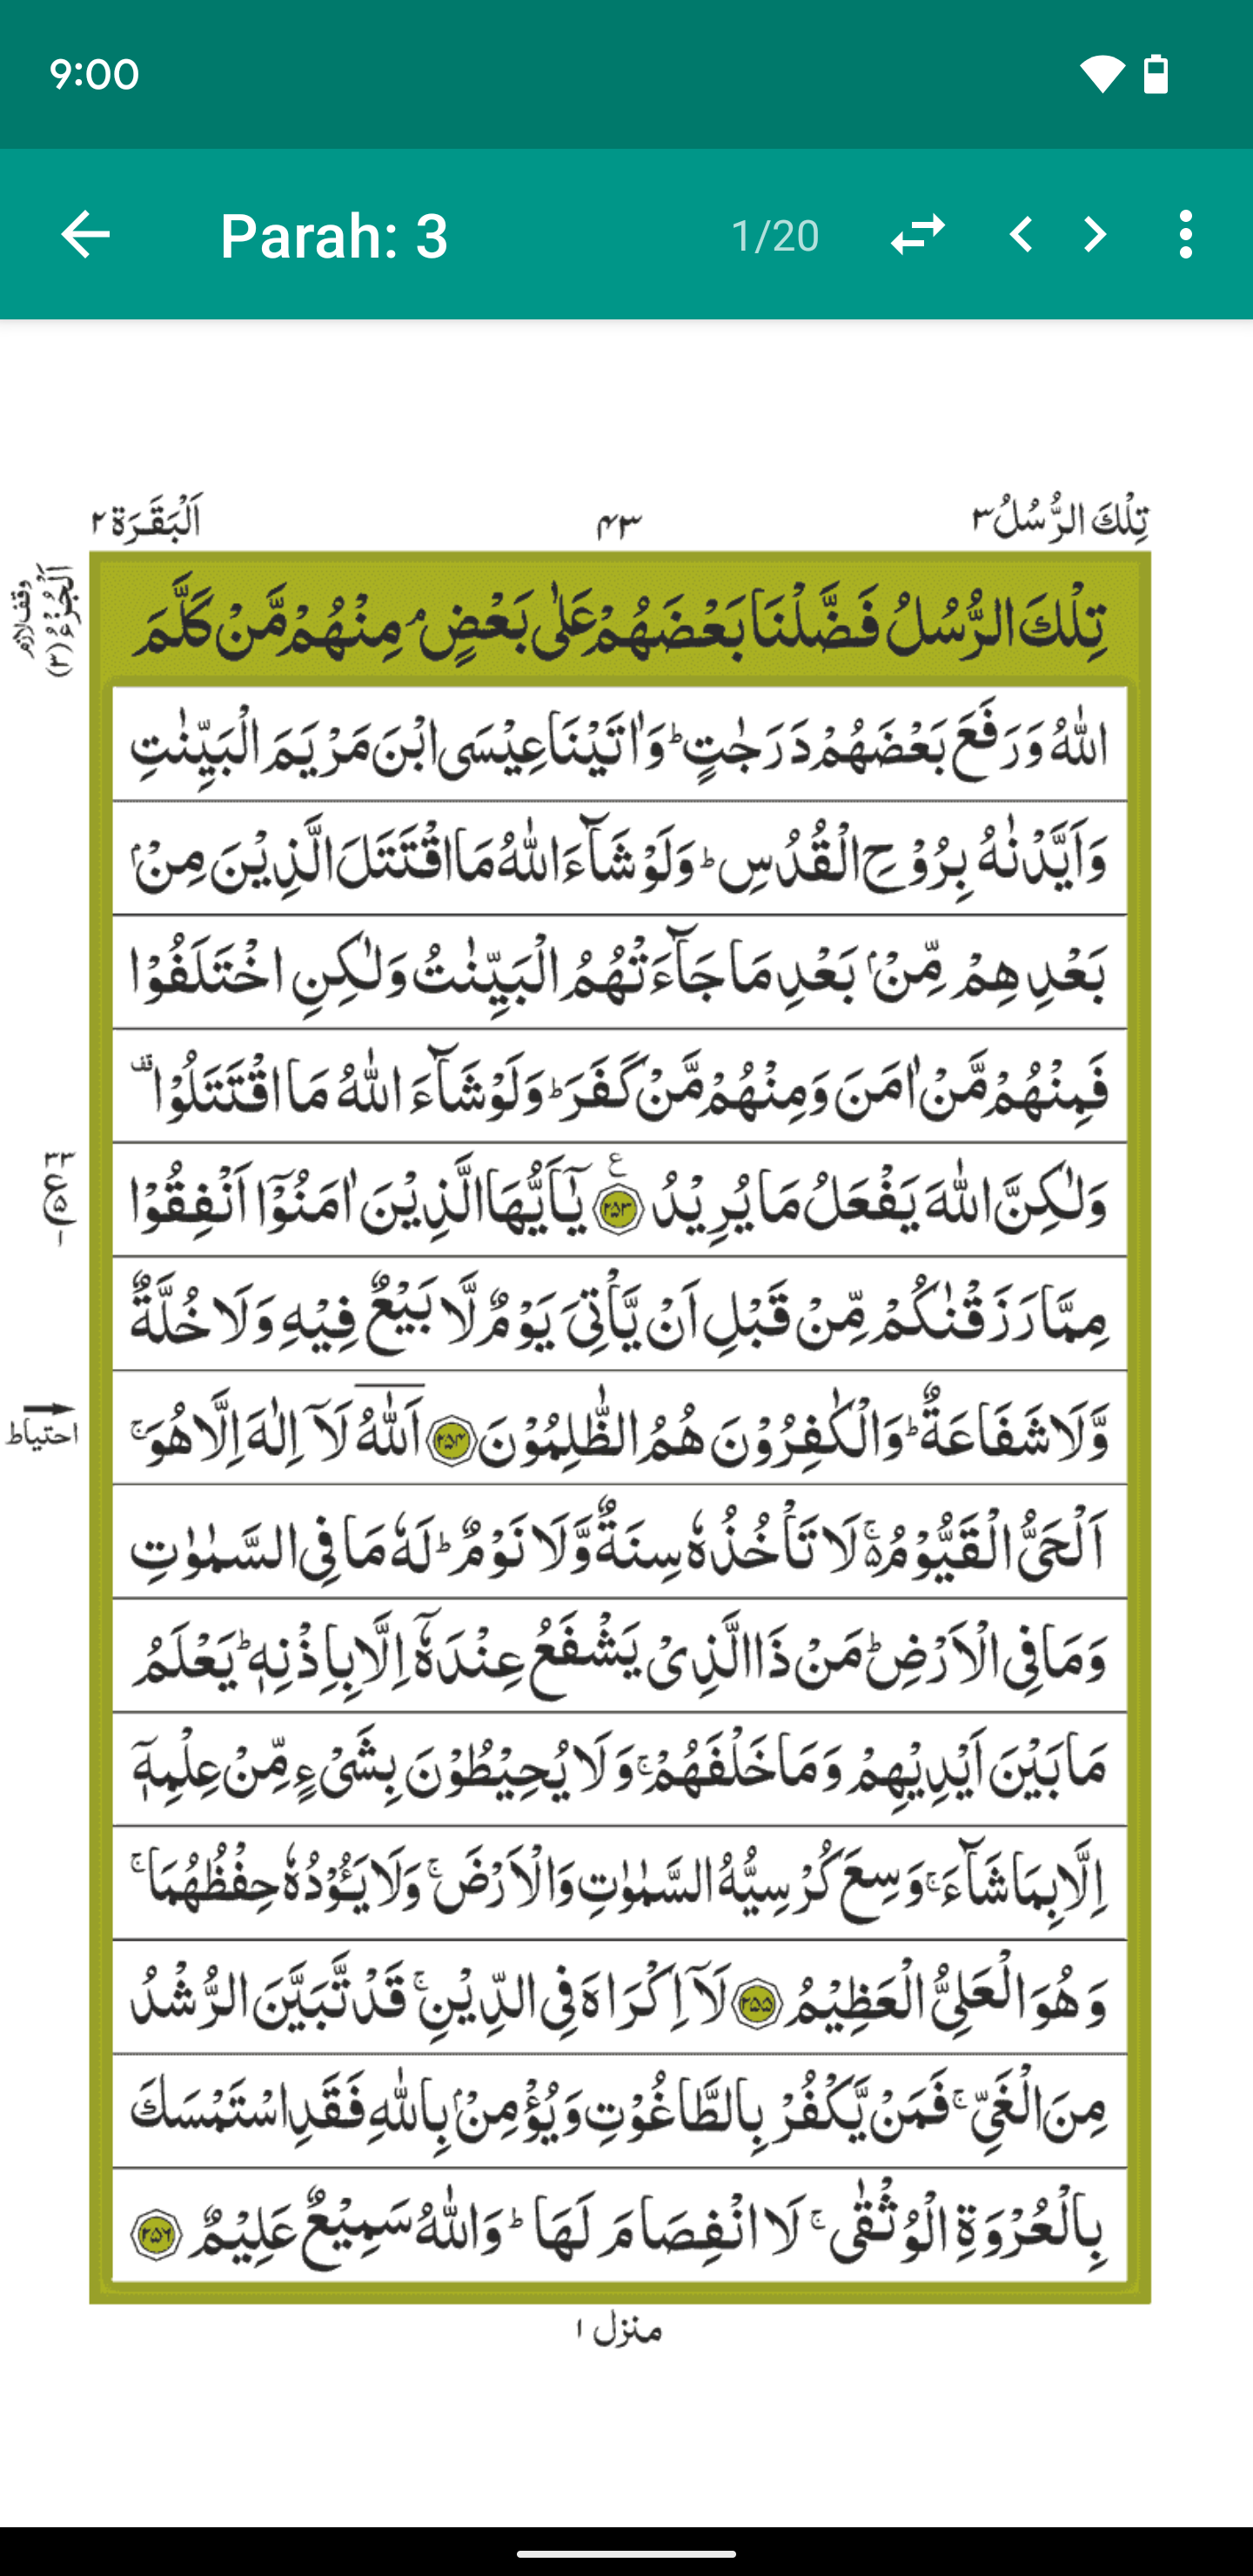 9:00
Parah: 3
1/20
تِلْكَ الرُّسُلُ ۳
۴۳
اَلْبَقَرَة ۲
اَلْجُزْءُ (۳)
وقف لازم
تِلْكَ الرُّسُلُ فَضَّلْنَا بَعْضَهُمْ عَلٰى بَعْضٍ ۘ مِنْهُمْ مَّنْ كَلَّمَ
اللّٰهُ وَرَفَعَ بَعْضَهُمْ دَرَجٰتٍ ؕ وَاٰتَيْنَا عِيْسَى ابْنَ مَرْيَمَ الْبَيِّنٰتِ
وَاَيَّدْنٰهُ بِرُوْحِ الْقُدُسِ ؕ وَلَوْ شَآءَ اللّٰهُ مَا اقْتَتَلَ الَّذِيْنَ مِنْۢ
بَعْدِهِمْ مِّنْۢ بَعْدِ مَا جَآءَتْهُمُ الْبَيِّنٰتُ وَلٰكِنِ اخْتَلَفُوْا
فَمِنْهُمْ مَّنْ اٰمَنَ وَمِنْهُمْ مَّنْ كَفَرَ ؕ وَلَوْ شَآءَ اللّٰهُ مَا اقْتَتَلُوْا قف
وَلٰكِنَّ اللّٰهَ يَفْعَلُ مَا يُرِيْدُ ع ۲۵۳ يٰۤاَيُّهَا الَّذِيْنَ اٰمَنُوْۤا اَنْفِقُوْا
۳۳
ع ۵
۱
مِمَّا رَزَقْنٰكُمْ مِّنْ قَبْلِ اَنْ يَّاْتِىَ يَوْمٌ لَّا بَيْعٌ فِيْهِ وَلَا خُلَّةٌ
وَّلَا شَفَاعَةٌ ؕ وَالْكٰفِرُوْنَ هُمُ الظّٰلِمُوْنَ ۲۵۴ اَللّٰهُ لَاۤ اِلٰهَ اِلَّا هُوَ ۚ
احتیاط
اَلْحَىُّ الْقَيُّوْمُ ۬ۚ لَا تَاْخُذُهٗ سِنَةٌ وَّلَا نَوْمٌ ؕ لَهٗ مَا فِى السَّمٰوٰتِ
وَمَا فِى الْاَرْضِ ؕ مَنْ ذَا الَّذِىْ يَشْفَعُ عِنْدَهٗۤ اِلَّا بِاِذْنِهٖ ؕ يَعْلَمُ
مَا بَيْنَ اَيْدِيْهِمْ وَمَا خَلْفَهُمْ ۚ وَلَا يُحِيْطُوْنَ بِشَىْءٍ مِّنْ عِلْمِهٖۤ
اِلَّا بِمَا شَآءَ ۚ وَسِعَ كُرْسِيُّهُ السَّمٰوٰتِ وَالْاَرْضَ ۚ وَلَا يَـُٔوْدُهٗ حِفْظُهُمَا ۚ
وَهُوَ الْعَلِىُّ الْعَظِيْمُ ۲۵۵ لَاۤ اِكْرَاهَ فِى الدِّيْنِ ۚ قَدْ تَّبَيَّنَ الرُّشْدُ
مِنَ الْغَىِّ ۚ فَمَنْ يَّكْفُرْ بِالطَّاغُوْتِ وَيُؤْمِنْۢ بِاللّٰهِ فَقَدِ اسْتَمْسَكَ
بِالْعُرْوَةِ الْوُثْقٰى ۚ لَا انْفِصَامَ لَهَا ؕ وَاللّٰهُ سَمِيْعٌ عَلِيْمٌ ۲۵۶
منزل ۱